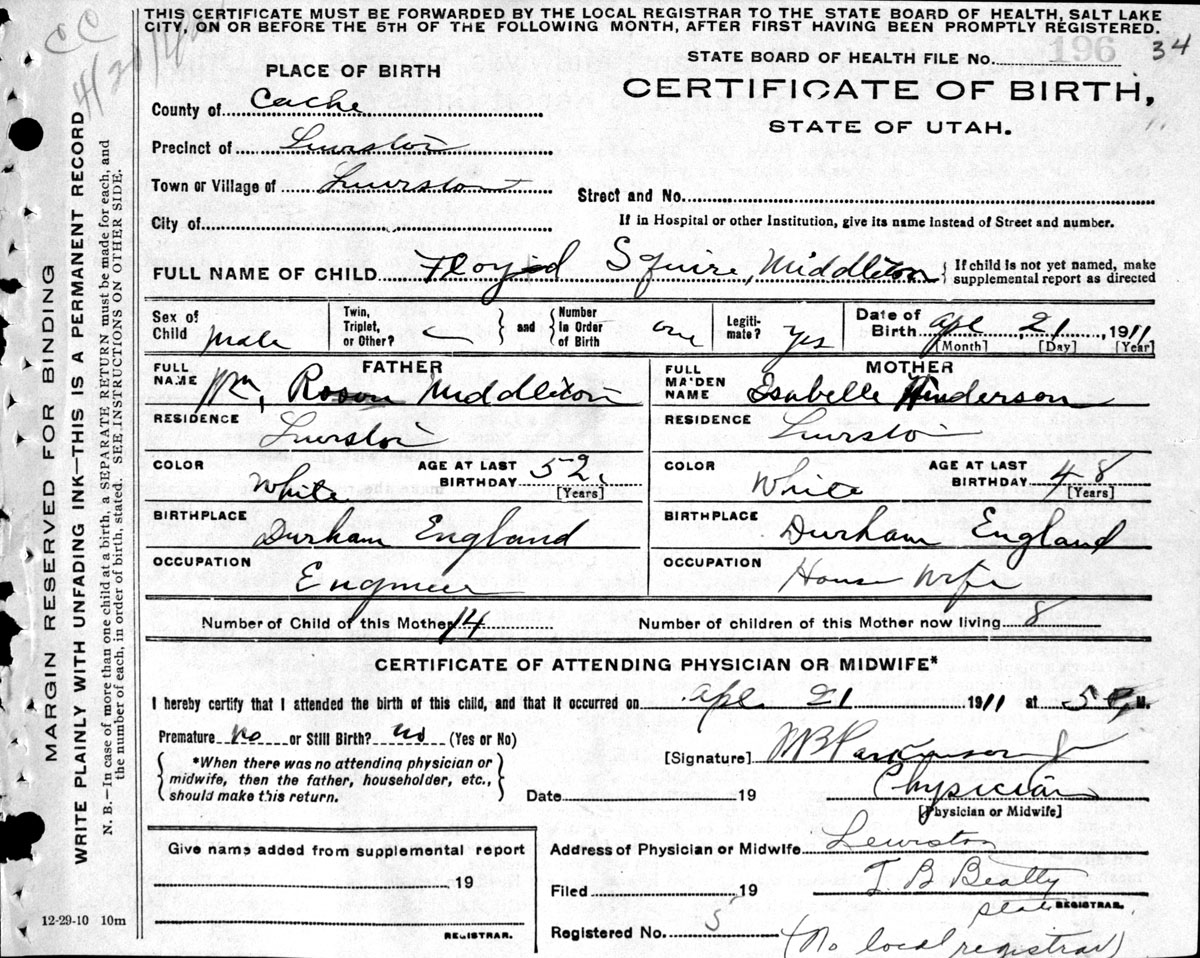 THIS CERTIFICATE MUST BE FORWARDED BY THE LOCAL REGISTRAR TO THE STATE BOARD OF HEALTH, SALT LAKE
CITY, ON OR BEFORE THE 5TH OF THE FOLLOWING MONTH, AFTER FIRST HAVING BEEN PROMPTLY REGISTERED.
CC
STATE BOARD OF HEALTH FILE No. 196 34
PLACE OF BIRTH
CERTIFICATE OF BIRTH,
STATE OF UTAH.
County of Cache
Precinct of Lewiston
Town or Village of Lewiston
Street and No.
City of
If in Hospital or other Institution, give its name instead of Street and number.
FULL NAME OF CHILD Floyd Squire, Middleton { If child is not yet named, make supplemental report as directed
Sex of Child Male
Twin, Triplet, or Other? } and { Number in Order of Birth one
Legiti-mate? yes
Date of Birth Apl 21, 1911
[Month] [Day] [Year]
FATHER
FULL NAME Wm, Middleton
RESIDENCE Lewiston
COLOR White AGE AT LAST BIRTHDAY 52 [Years]
BIRTHPLACE Durham England
OCCUPATION Engineer
MOTHER
FULL MAIDEN NAME Isabelle Henderson
RESIDENCE Lewiston
COLOR White AGE AT LAST BIRTHDAY 48 [Years]
BIRTHPLACE Durham England
OCCUPATION House Wife
Number of Child of this Mother 14 Number of children of this Mother now living 8
CERTIFICATE OF ATTENDING PHYSICIAN OR MIDWIFE*
I hereby certify that I attended the birth of this child, and that it occurred on Apl 21 1911 at 5 P, M.
Premature no or Still Birth? no (Yes or No)
{ *When there was no attending physician or midwife, then the father, householder, etc., should make this return. }
[Signature] WB Parkinson Jr
Date 19 Physician
[Physician or Midwife]
Give name added from supplemental report
19
REGISTRAR.
Address of Physician or Midwife Lewiston
Filed 19 T. B Beatty
State REGISTRAR.
Registered No. 5 (No local registrar)
12-29-10 10m
MARGIN RESERVED FOR BINDING
WRITE PLAINLY WITH UNFADING INK—THIS IS A PERMANENT RECORD
N. B.—In case of more than one child at a birth, a SEPARATE RETURN must be made for each, and
the number of each, in order of birth, stated. SEE INSTRUCTIONS ON OTHER SIDE.